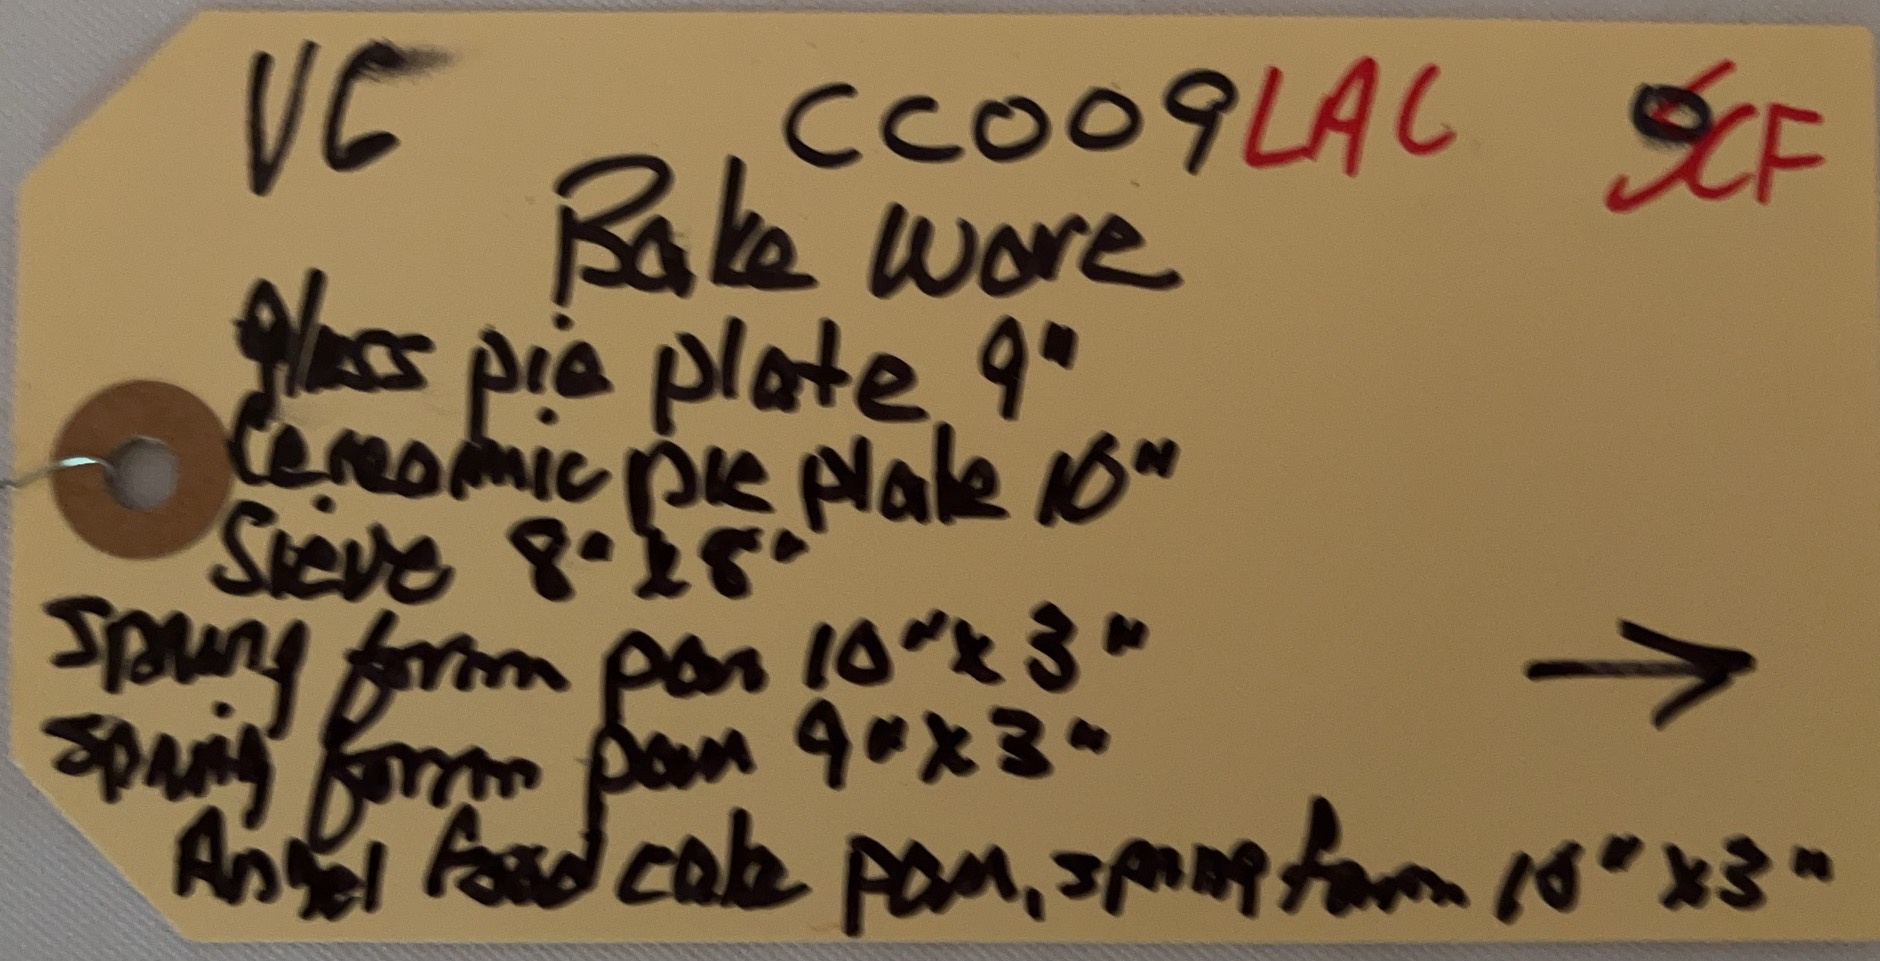 VG CC009 LAC CF
Bake Ware
glass pie plate 9"
Cereomic pie plate 10"
Sieve 8" x 8"
Spring form pan 10" x 3"
Spring form pan 9" x 3"
Angel food cake pan, spring form 10" x 3"